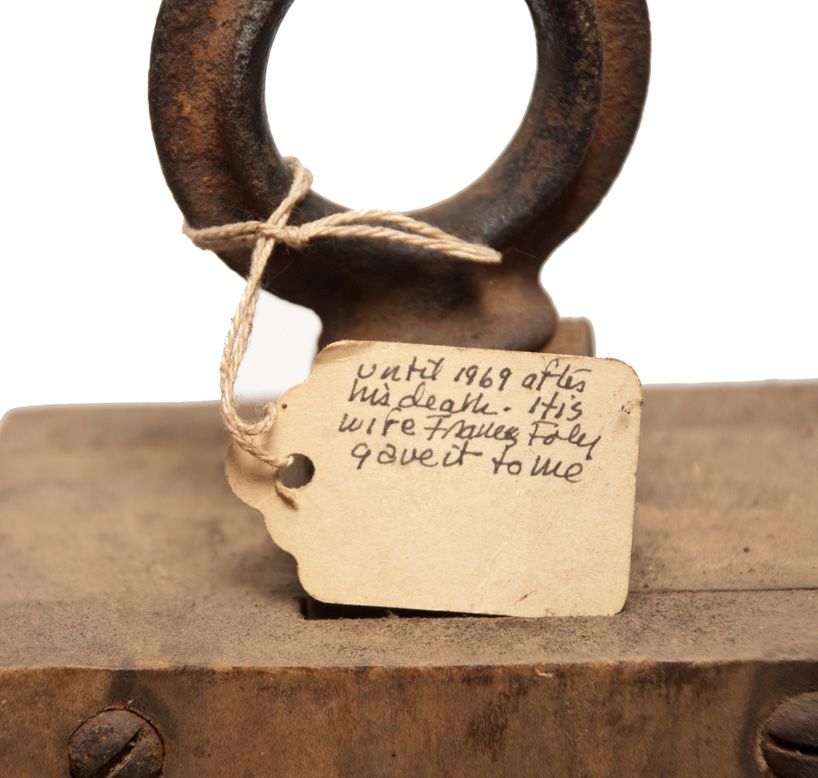 until 1969 after
his death. His
wife Frances Foley
gave it to me